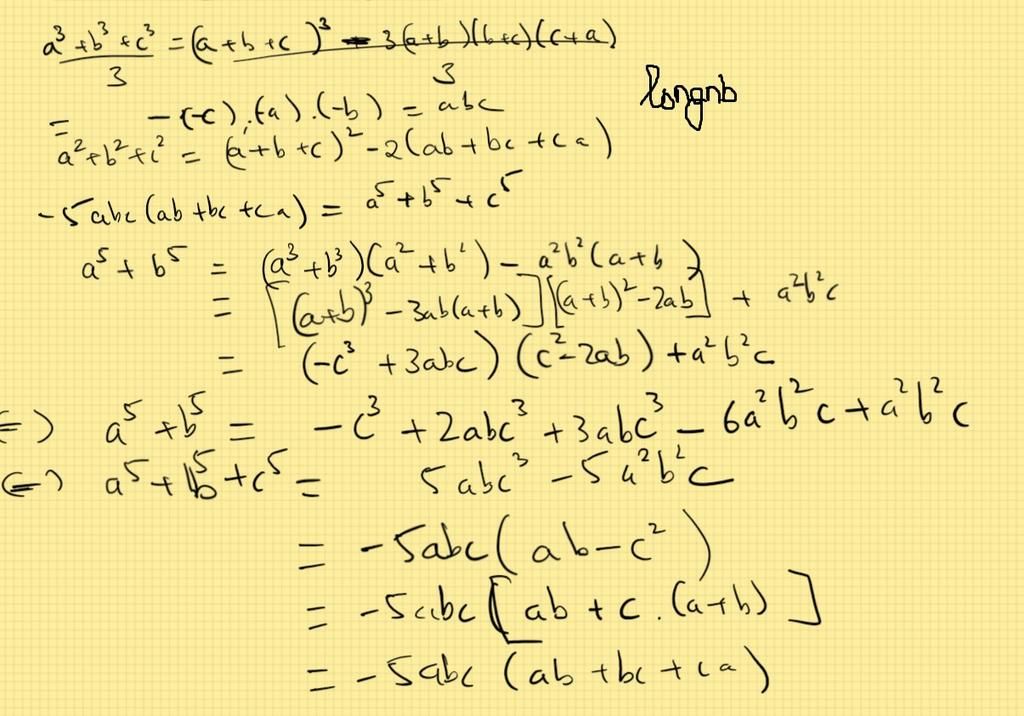 a³ + b³ + c³ / 3 = (a + b + c)³ - 3(a+b)(b+c)(c+a) / 3
= -(-c).(-a).(-b) = abc
longnb
a² + b² + c² = (a + b + c)² - 2(ab + bc + ca)
-5abc(ab + bc + ca) = a⁵ + b⁵ + c⁵
a⁵ + b⁵ = (a³ + b³)(a² + b²) - a²b²(a + b)
= [(a+b)³ - 3ab(a+b)][(a+b)² - 2ab] + a²b²c
= (-c³ + 3abc)(c² - 2ab) + a²b²c
⇔) a⁵ + b⁵ = -c³ + 2abc³ + 3abc³ - 6a²b²c + a²b²c
⇔) a⁵ + b⁵ + c⁵ = 5abc³ - 5a²b²c
= -5abc(ab - c²)
= -5abc[ab + c.(a+b)]
= -5abc(ab + bc + ca)